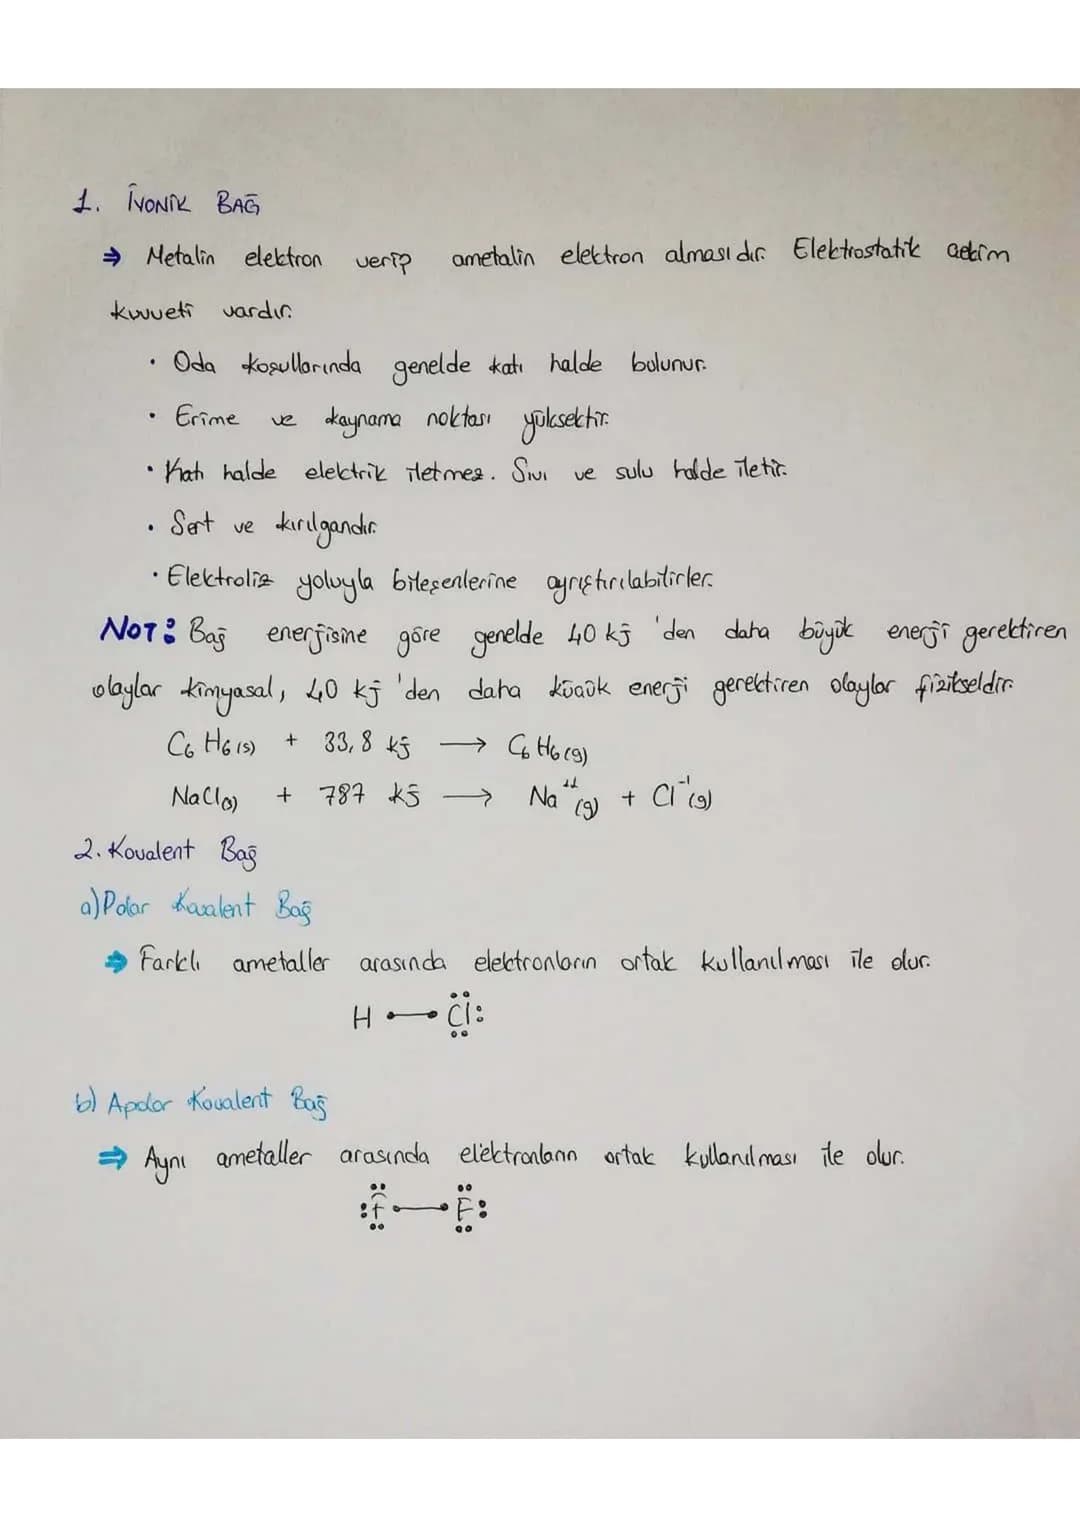 1. İYONİK BAĞ
⇒ Metalin elektron verip ametalin elektron almasıdır. Elektrostatik çekim
kuvveti vardır.
• Oda koşullarında genelde katı halde bulunur.
• Erime ve kaynama noktası yüksektir.
• Katı halde elektrik iletmez. Sıvı ve sulu halde iletir.
• Sert ve kırılgandır.
• Elektroliz yoluyla bileşenlerine ayrıştırılabilirler.
NOT: Bağ enerjisine göre genelde 40 kj 'den daha büyük enerji gerektiren
olaylar kimyasal, 40 kj 'den daha küçük enerji gerektiren olaylar fizikseldir.
C6 H6 (s) + 33,8 kj → C6 H6 (g)
NaCl(s) + 787 kj → Na⁺¹(g) + Cl⁻¹(g)
2. Kovalent Bağ
a) Polar Kovalent Bağ
⇒ Farklı ametaller arasında elektronların ortak kullanılması ile olur.
H •—• Cl:
b) Apolar Kovalent Bağ
⇒ Aynı ametaller arasında elektronların ortak kullanılması ile olur.
:F •—• F: